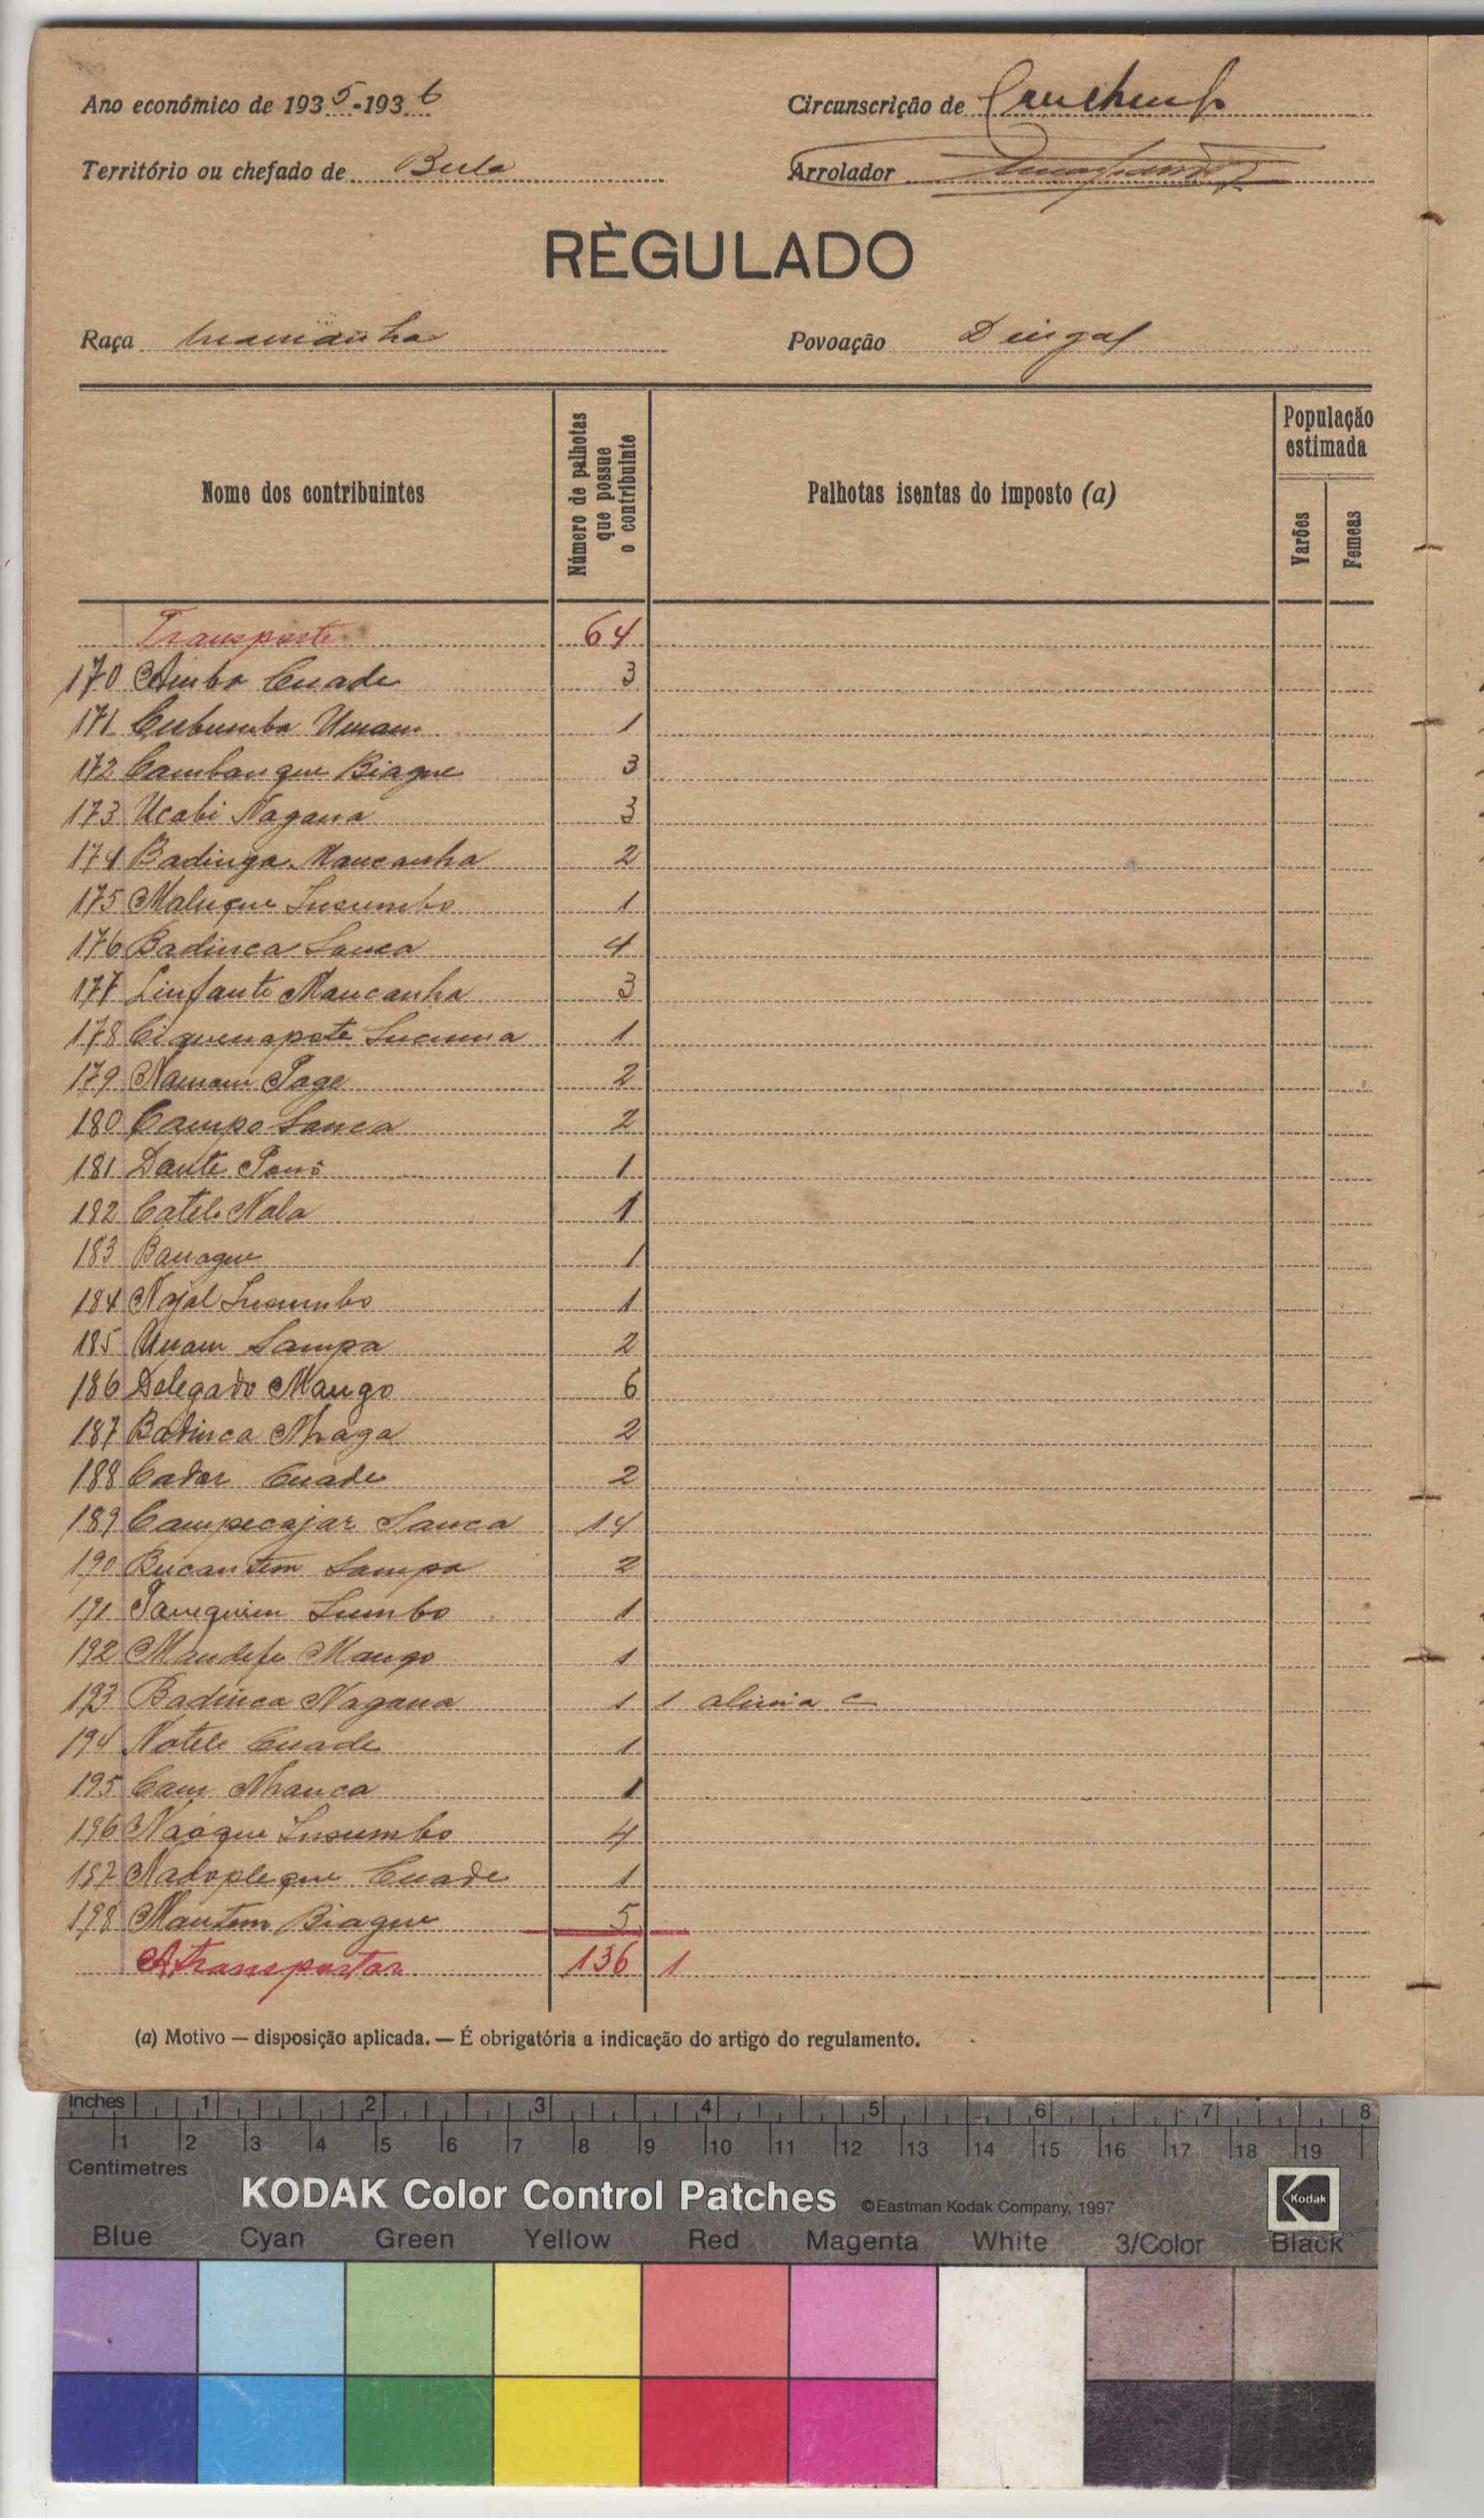 Ano económico de 1935-1936
Circunscrição de
Território ou chefado de Bula
Arrolador
RÈGULADO
Raça mancanha
Povoação Dingal
Nome dos contribuintes
Número de palhotas que possue o contribuinte
Palhotas isentas do imposto (a)
População estimada
Varões
Femeas
Transporte 64
170 Cuade 3
171 Cubumba Unam 1
172 Cambangue Biague 3
173 Ucabi Nagana 3
174 Badinga Mancanha 2
175 Maluque Insumbo 1
176 Badinca Sanca 4
177 Linfante Mancanha 3
178 1
179 Namam Page 2
180 Campo Sanca 2
181 Dante 1
182 Catele Nala 1
183 Banague 1
184 Najal Insumbo 1
185 Unam Sampa 2
186 Delegado Mango 6
187 Badinca Nhaga 2
188 Cadar Cuade 2
189 Campecajar Sanca 14
190 Bucantem Sampa 2
191 1
192 Mandefu Mango 1
193 Badinca Nagana 1 1 alinia c
194 Natele Cuade 1
195 Cam Nhanca 1
196 Naogue Insumbo 4
197 Nadopleque Cuade 1
198 Mantem Biague 5
A transportar 136 1
(a) Motivo — disposição aplicada. — É obrigatória a indicação do artigo do regulamento.
Inches 1 2 3 4 5 6 7 8
1 2 3 4 5 6 7 8 9 10 11 12 13 14 15 16 17 18 19
Centimetres
KODAK Color Control Patches ©Eastman Kodak Company, 1997 Kodak
Blue Cyan Green Yellow Red Magenta White 3/Color Black